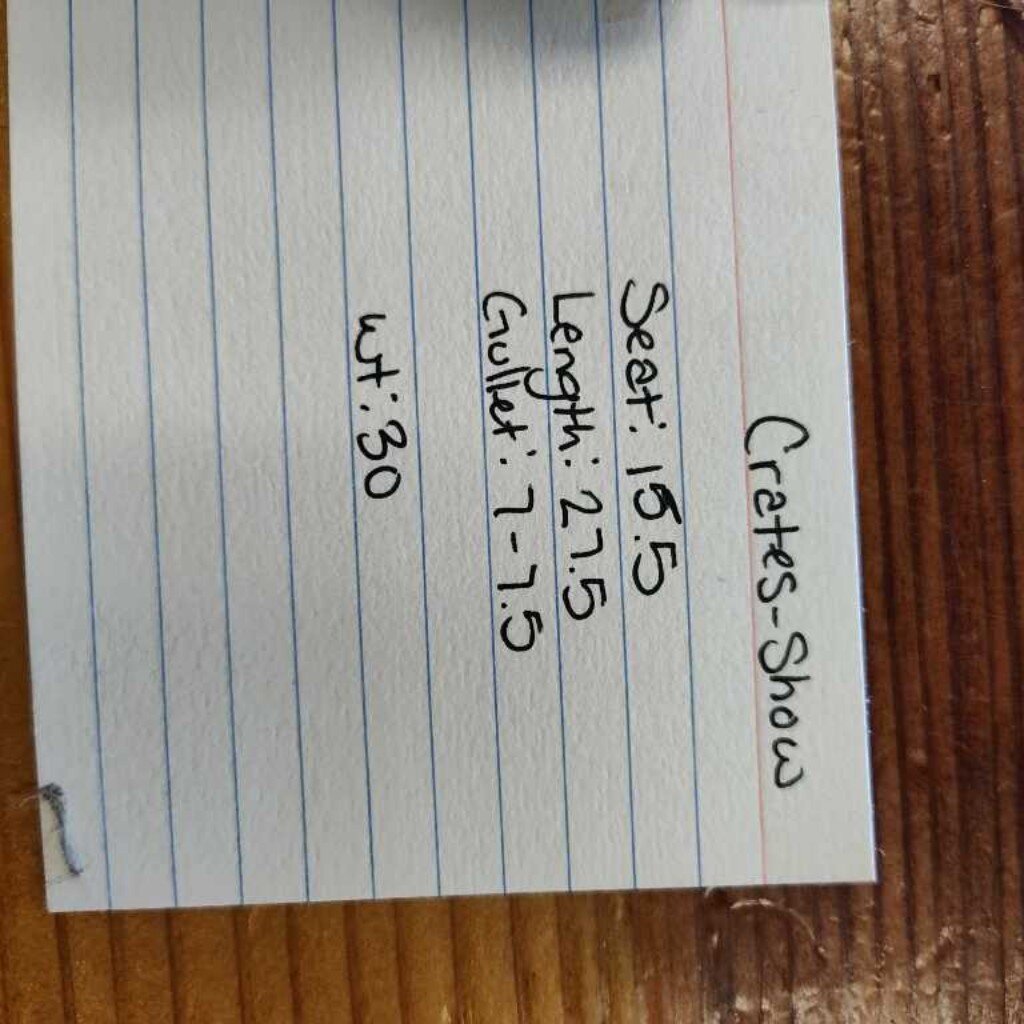 Crates-Show
Seat: 15.5
Length: 27.5
Gullet: 7-7.5
Wt: 30